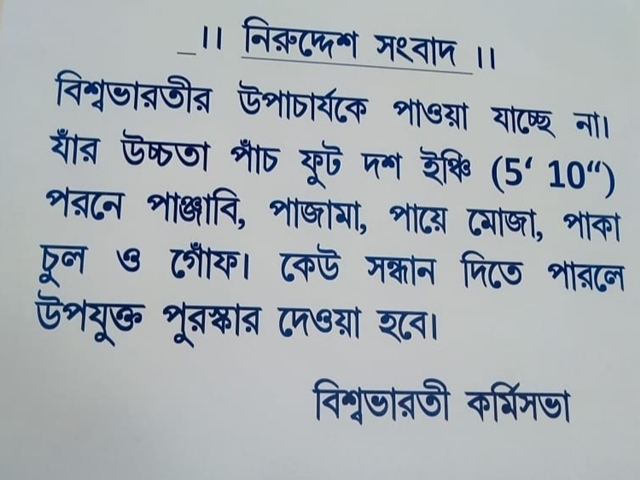 _।। নিরুদ্দেশ সংবাদ ।।
বিশ্বভারতীর উপাচার্যকে পাওয়া যাচ্ছে না।
যাঁর উচ্চতা পাঁচ ফুট দশ ইঞ্চি (5‘ 10“)
পরনে পাঞ্জাবি, পাজামা, পায়ে মোজা, পাকা
চুল ও গোঁফ। কেউ সন্ধান দিতে পারলে
উপযুক্ত পুরস্কার দেওয়া হবে।
বিশ্বভারতী কর্মিসভা